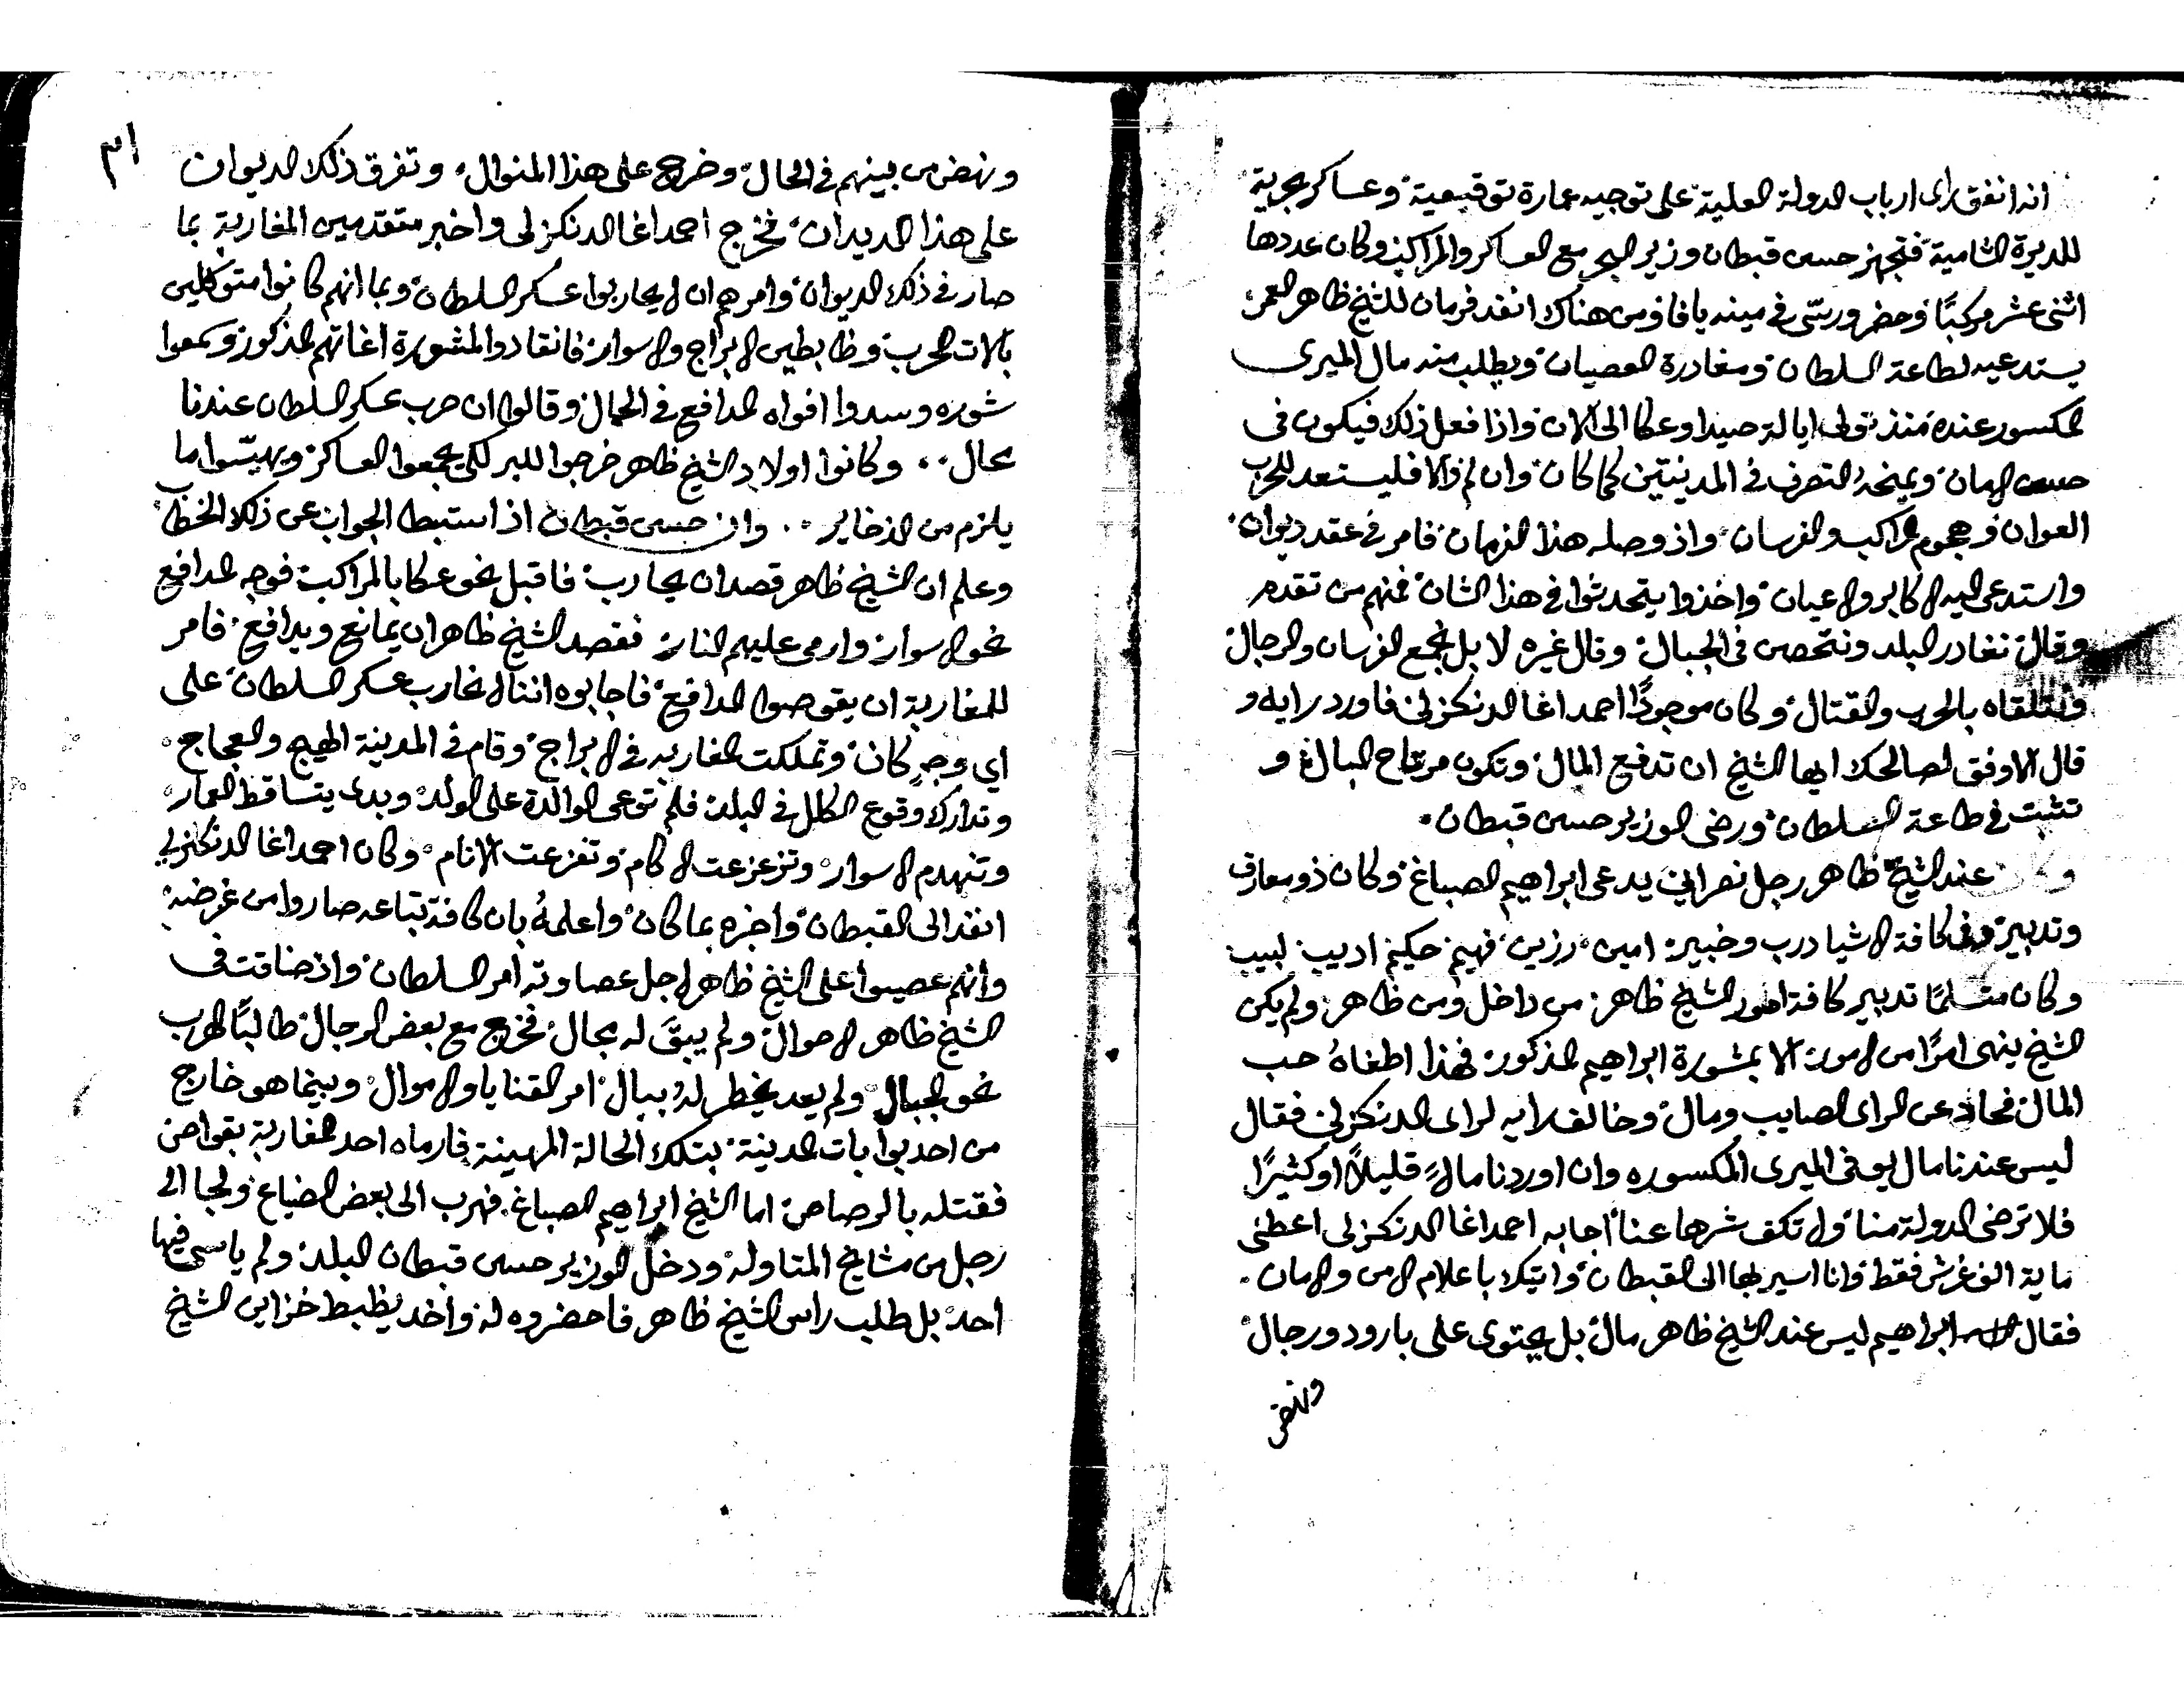 انه اتفق راى ارباب الدولة العلية على توجيه عمارة توقيعية وعساكر بحرية
للديرة الشامية فتجهز حسن قبطان وزير البحر مع العساكر والمراكب وكان عددها
اثنى عشر مركبًا وحضر ورسّى في مينه يافا ومن هناك انفد فرمان للشيخ ظاهر العمر
يستدعيه لطاعة السلطان ومغادرة العصيان ويطلب منه مال الميرى
المكسور عنده منذ تولى ايالة صيدا وعكا الى الان واذا فعل ذلك فيكون فى
حسن الامان ويمنحهُ التصرف في المدينتين كما كان وان لم فالا فليستعد للحرب
العوان وهجوم المراكب والفرسان واذ وصله هذا الفرمان فامر في عقد ديوان
واستدعى اليه الاكابر والاعيان واخذوا يتحدثوا في هذا الشان فمنهم من تقدم
وقال نغادر البلد ونتحصن فى الجبال وقال غيره لا بل نجمع الفرسان والرجال
ونتلقاه بالحرب والقتال وكان موجودًا احمد اغا الدنكزلى فاورد رايه و
قال الاوفق لصالحك ايها الشيخ ان تدفع المال وتكون مرتاح البال و
تثبت في طاعة السلطان ورضى الوزير حسن قبطان
وكان عند الشيخ ظاهر رجل نصراني يدعى ابراهيم الصباغ وكان ذو معارف
وتدبير وفى كافة الاشيا درب وخبير امين رزين فهيم حكيم اديب لبيب
وكان متسلمًا تدبير كافة امور الشيخ ظاهر من داخل ومن ظاهر ولم يكن
الشيخ ينهى امرًا من الامور الا بمشورة ابراهيم المذكور فهذا اطغاهُ حب
المال فحاد عن الراى الصايب ومال وخالف رايه لراى الدنكزلى فقال
ليس عندنا مال يوفى الميرى المكسوره وان اوردنا مالاً قليلاً او كثيرًا
فلا ترضى الدولة منا ولا تكف شرها عنا اجابه احمد اغا الدنكزلى اعطنى
ماية الف غرش فقط وانا اسير بها الى القبطان واتيك باعلام الامن والامان
فقال ابراهيم ليس عند الشيخ ظاهر مال بل يحتوى على بارود ورجال
ونهض
٣١
ونهض من بينهم في الحال وخرج على هذا المنوال وتفرق ذلك الديوان
على هذا الديدان فخرج احمد اغا الدنكزلى واخبر متقدمين المغاربة بما
صار في ذلك الديوان وامرهم ان لا يحاربوا عسكر السلطان وبما انهم كانوا متوكلين
بالات الحرب وظابطين الابراج والاسوار فانقادوا لمشورة اغاتهم المذكور وسمعوا
شوره وسدوا افواه المدافع في الحال وقالوا ان حرب عسكر السلطان عندنا
محال .. وكانوا اولاد الشيخ ظاهر خرجوا للبر لكى يجمعوا العساكر ويهيّوا ما
يلزم من الذخاير .. وان حسن قبطان اذ استبطا الجواب عن ذلك الخطاب
وعلم ان الشيخ ظاهر قصد ان يحارب فاقبل نحو عكا بالمراكب فوجه المدافع
نحو الاسوار وارمى عليهم النار فقصد الشيخ ظاهر ان يمانع ويدافع فامر
للمغاربة ان يقوصوا المدافع فاجابوه اننا لا نحارب عسكر السلطان على
اي وجهٍ كان وتملكت المغاربه في الابراج وقام في المدينة الهيج والعجاج
وتدارك وقوع الكلل في البلد فلم توعى الوالدة على الولد وبدى يتساقط العمار
وتنهدم الاسوار وتزعزعت الاكام وتفزعت الانام وكان احمد اغا الدنكزلي
انفد الى القبطان واخبره بما كان واعلمهُ بان كافة تباعه صاروا من غرضه
وانهم عصيوا على الشيخ ظاهر لاجل عصاوته امر السلطان واذ ضاقت فى
الشيخ ظاهر الاحوال ولم يبقَّ له مجال فخرج مع بعض الرجال طالبًا الهرب
نحو الجبال ولم يعد يخطر لهُ ببال امر القنايا والاموال وبينما هو خارج
من احد بوابات المدينة بتلك الحالة المهينة فارماه احد المغاربة بقواص
فقتله بالرصاص اما الشيخ ابراهيم الصباغ فهرب الى بعض الضياع ولجا الى
رجل من مشايخ المتاوله ودخل الوزير حسن قبطان البلد ولم ياسى فيها
احد بل طلب راس الشيخ ظاهر فاحضروه له واخد يظبط خزاين الشيخ